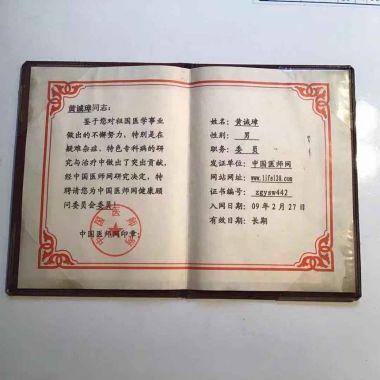 黄诚璋同志：
鉴于您对祖国医学事业
做出的不懈努力，特别是在
疑难杂症，特色专科病的研
究与治疗中做出了突出贡献，
经中国医师网研究决定，特
聘请您为中国医师网健康顾
问委员会委员！
中国医师网印章：
中国医师网
姓名：黄诚璋
性别：男
职务：委员
发证单位：中国医师网
网站网址：www.life120.com
证书编号：zgysw442
入网日期：09年2月27日
有效日期：长期